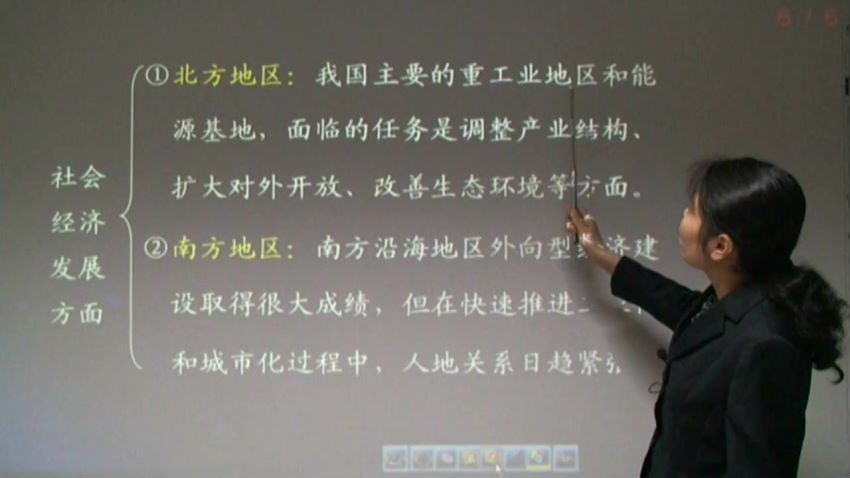 6/6
①北方地区：我国主要的重工业地区和能
源基地，面临的任务是调整产业结构、
扩大对外开放、改善生态环境等方面。
社会
经济
发展
方面
②南方地区：南方沿海地区外向型经济建
设取得很大成绩，但在快速推进
和城市化过程中，人地关系日趋紧